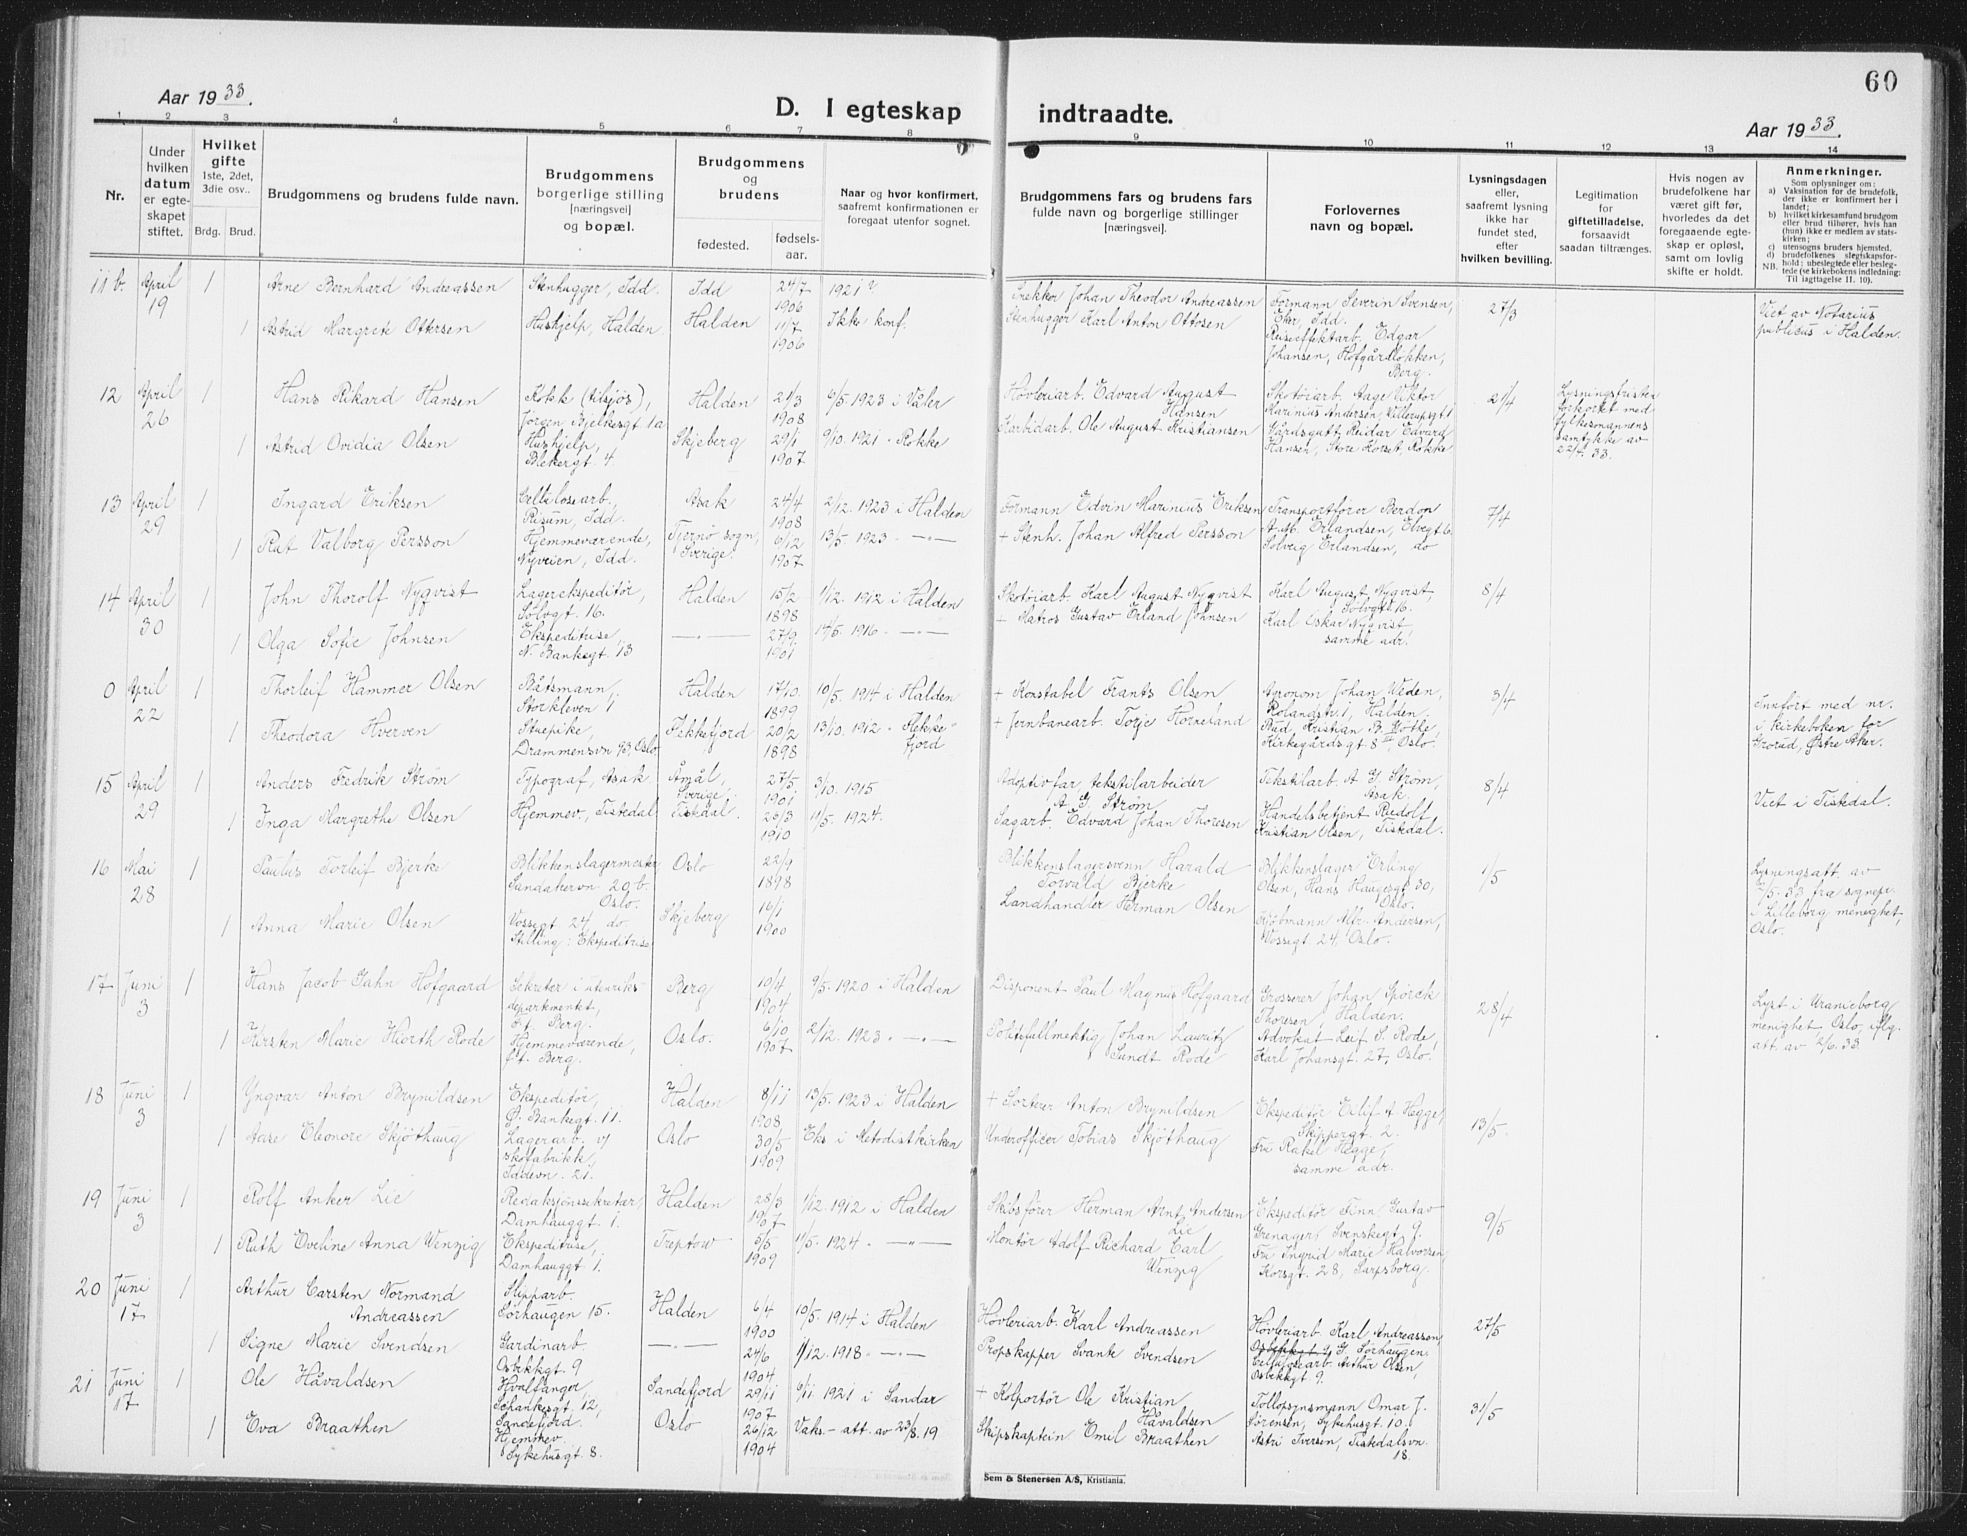 60
Aar 1933.
D. I egteskap indtraadte.
Aar 1933.
1 2 3 4 5 6 7 8 9 10 11 12 13 14
Nr.
Under hvilken datum er egteskapet stiftet.
Hvilket gifte 1ste, 2det, 3die osv..
Brdg. Brud.
Brudgommens og brudens fulde navn.
Brudgommens borgerlige stilling [næringsvei] og bopæl.
Brudgommens og brudens
fødested.
fødsels-aar.
Naar og hvor konfirmert, saafremt konfirmationen er foregaat utenfor sognet.
Brudgommens fars og brudens fars fulde navn og borgerlige stillinger [næringsvei].
Forlovernes navn og bopæl.
Lysningsdagen eller, saafremt lysning ikke har fundet sted, efter hvilken bevilling.
Legitimation for giftetilladelse, forsaavidt saadan tiltrænges.
Hvis nogen av brudefolkene har været gift før, hvorledes da det foregaaende egteskap er opløsl, samt om lovlig skifte er holdt.
Anmerkninger.
Som oplysninger om:
a) Vaksination for de brudefolk, der ikke er konfirmert her i landet;
b) hvilket kirkesamfund brudgom eller brud tilhører, hvis han (hun) ikke er medlem av statskirken;
c) utensogns bruders hjemsted.
d) brudefolkenes slegtskapsforhold: ubeslegtede eller beslegtede (se kirkebokens indledning:
NB. Til iagttagelse II. 10).
11 b. April 19 1 Arne Bernhard Andreassen Stenhugger, Idd. Idd 24/7 1906 1921 Johan Theodor Andreassen Formann Severin Svensen, Idd. 27/3 Viet av Notarius publicus i Halden.
1 Astrid Margrete Ottersen Hushjelp, Halden Halden 11/7 1906 Ikke konf. Stenhugger Karl Anton Ottosen Edgar Johansen, Hofgårdløkken, Berg.
12 April 26 1 Hans Rikard Hansen Kokk (tilsjøs), Jørgen Bjelkesgt 1a Halden 21/3 1908 6/5 1923 i Våler Høvleriarb. Edvard August Hansen Skotøiarb. Aage Viktor Marinius Andersen, Villerupsgt 1 21/4 Lysningsfristen forkortet med fylkesmannens samtykke av 22/4. 33.
1 Astrid Ovidia Olsen Hushjelp, Blekergt. 4. Skjeberg 29/1 1907 9/10. 1921 - Rokke Karbidarb. Ole August Kristiansen Gårdsgutt Reidar Edvard Hansen, Store Korset, Rokke
13 April 29 1 Ingard Eriksen Cellulosearb., Risum, Idd. Asak 24/4 1908 2/12. 1923 i Halden Formann Edvin Marinius Eriksen Transportfører Berdon A. M. Erlandsen, Elvegt 6. 7/4
1 Rut Valborg Persson Hjemmeværende, Nyveien, Idd. Tjernø sogn, Sverige. 6/12 1907 13/5. 1923 -"- + Stenh. Johan Alfred Persson Solveig Erlandsen, do
14 April 30 1 John Thorolf Nyqvist Lagerekspeditør, Sølvgt. 16. Halden 15/2 1898 1/12. 1912 i Halden Skotøiarb. Karl August Nyqvist Karl August Nyqvist, Sølvgt. 16. 8/4
1 Olga Sofie Johnsen Ekspeditrise, N. Bankegt. 13 -"- 27/9 1901 14/5. 1916 -"- + Matros Gustav Erland Johnsen Karl Oskar Nyqvist samme adr.
0 April 22 1 Thorleif Hammer Olsen Båtsmann, Storkleven 1 Halden 17/10. 1899 10/5. 1914 i Halden + Konstabel Frants Olsen Agronom Johan Weden, Rolandstr. 1, Halden. 3/4 Innført med nr. i kirkeboken for Grorud, Østre Aker.
1 Theodora Hverven Stuepike, Drammensvn 93 Oslo Flekkefjord 20/2 1898 13/10. 1912 - Flekkefjord + Jernbanearb. Torje Horneland Bud, Kristian B. Gothe, Kirkegårdsgt 8, Oslo.
15 April 29 1 Anders Fredrik Strøm Typograf, Asak Åmål, Sverige, 27/5 1901 3/10. 1915 Adoptivfar tekstilarbeider A G Strøm Tekstilarb. A G. Strøm, Asak. 8/4 Viet i Tistedal.
1 Inga Margrethe Olsen Hjemmev, Tistedal Tistedal. 26/3 1910 11/5. 1924. Sagarb. Edvard Johan Thoresen Handelsbetjent Rudolf Kristian Olsen, Tistedal.
16 Mai 28 1 Paulus Torleif Bjerke Blikkenslagermester Sandakervn. 20 b. Oslo. Oslo 22/9 1898 Blikkenslagersvenn Harald Torvald Bjerke Blikkenslager Erling Olsen, Hans Haugesgt 30, Oslo. 1/5 Lysningsatt. av 7/5. 33 fra sognepr. i Lilleborg menighet, Oslo.
1 Anna Marie Olsen Vossegt 24 do. Stilling: Ekspeditrise Skjeberg 16/1 1900 Landhandler Herman Olsen Kjøbmann Alb. Andersen, Vossegt. 24, Oslo.
17 Juni 3 1 Hans Jacob Jahn Hofgaard Sekretær i utenriksdepartmentet, f.t. Berg. Berg 10/4 1904 9/5. 1920 i Halden Disponent Paul Magnus Hofgaard Grosserer Johan Spørck Thoresen, Halden. 28/4 Lyst i Uranieborg menighet, Oslo, iflg. att. av 2/6. 33.
1 Kirsten Marie Hiorth Rode Hjemmeværende, f.t. Berg. Oslo. 6/10 1907 2/12. 1923. -"- Politifullmektig Johan Lauritz Sundt Rode Advokat Leif S. Rode, Karl Johansgt. 27, Oslo.
18 Juni 3 1 Yngvar Anton Brynildsen Ekspeditør, Ø. Bankegt. 11. Halden 8/11 1908 13/5. 1923 i Halden + Sorterer Anton Brynildsen Ekspeditør Eilif A Hegge, Skippergt. 2. 13/5.
1 Aase Eleonore Skjøthaug Lagerarb. v/ skofabrikk, Iddevn. 21. Oslo 30/5 1909 Eks i Metodistkirken Underofficer Tobias Skjøthaug Fru Rakel Hegge, samme adr.
19 Juni 3 1 Rolf Anker Lie Redaksjonssekretær, Damhauggt. 1. Halden 28/3 1907 1/12. 1912 i Halden Skibsfører Herman Arnt Andersen Lie Ekspeditør Finn Gustav Grenager, Svenskegt 9. 9/5
1 Ruth Eveline Anna Wenzig Ekspeditrise, Damhauggt 1. Treptow 5/5 1909 11/5. 1924. -"- Montør Adolf Richard Carl Wenzig Fru Ingrid Marie Halvorsen, Korsgt. 28, Sarpsborg.
20 Juni 17 1 Arthur Carsten Normand Andreassen Sliparb. Sørhaugen 15. Halden 6/4 1900 10/5. 1914 i Halden Høvleriarb. Karl Andreassen Høvleriarb. Karl Andreassen, G. Sørhaugen, 27/5
1 Signe Marie Svendsen Gardinarb. Osbekkgt. 9 -"- 24/6 1904 1/12. 1918 -"- Propskapper Svante Svendsen Cellulosearb. Arthur Olsen, Osbekkgt 9.
21 Juni 17 1 Ole Håvaldsen Hvalfanger, Schankesgt. 12, Sandefjord. Sandefjord 29/11 1907 6/11. 1921 i Sandar + Kolportør Ole Kristian Håvaldsen Tollopsynsmann Omar J. Sørensen, Sykehusgt. 10. 31/5
1 Eva Braathen Hjemmev. Sykehusgt 8. Oslo 26/12 1904 Vaks.- att. av 23/8. 19 Skipskaptein Emil Braathen Astri Iversen, Tistedalsvn. 18.
Sem & Stenersen A/S, Kristiania.